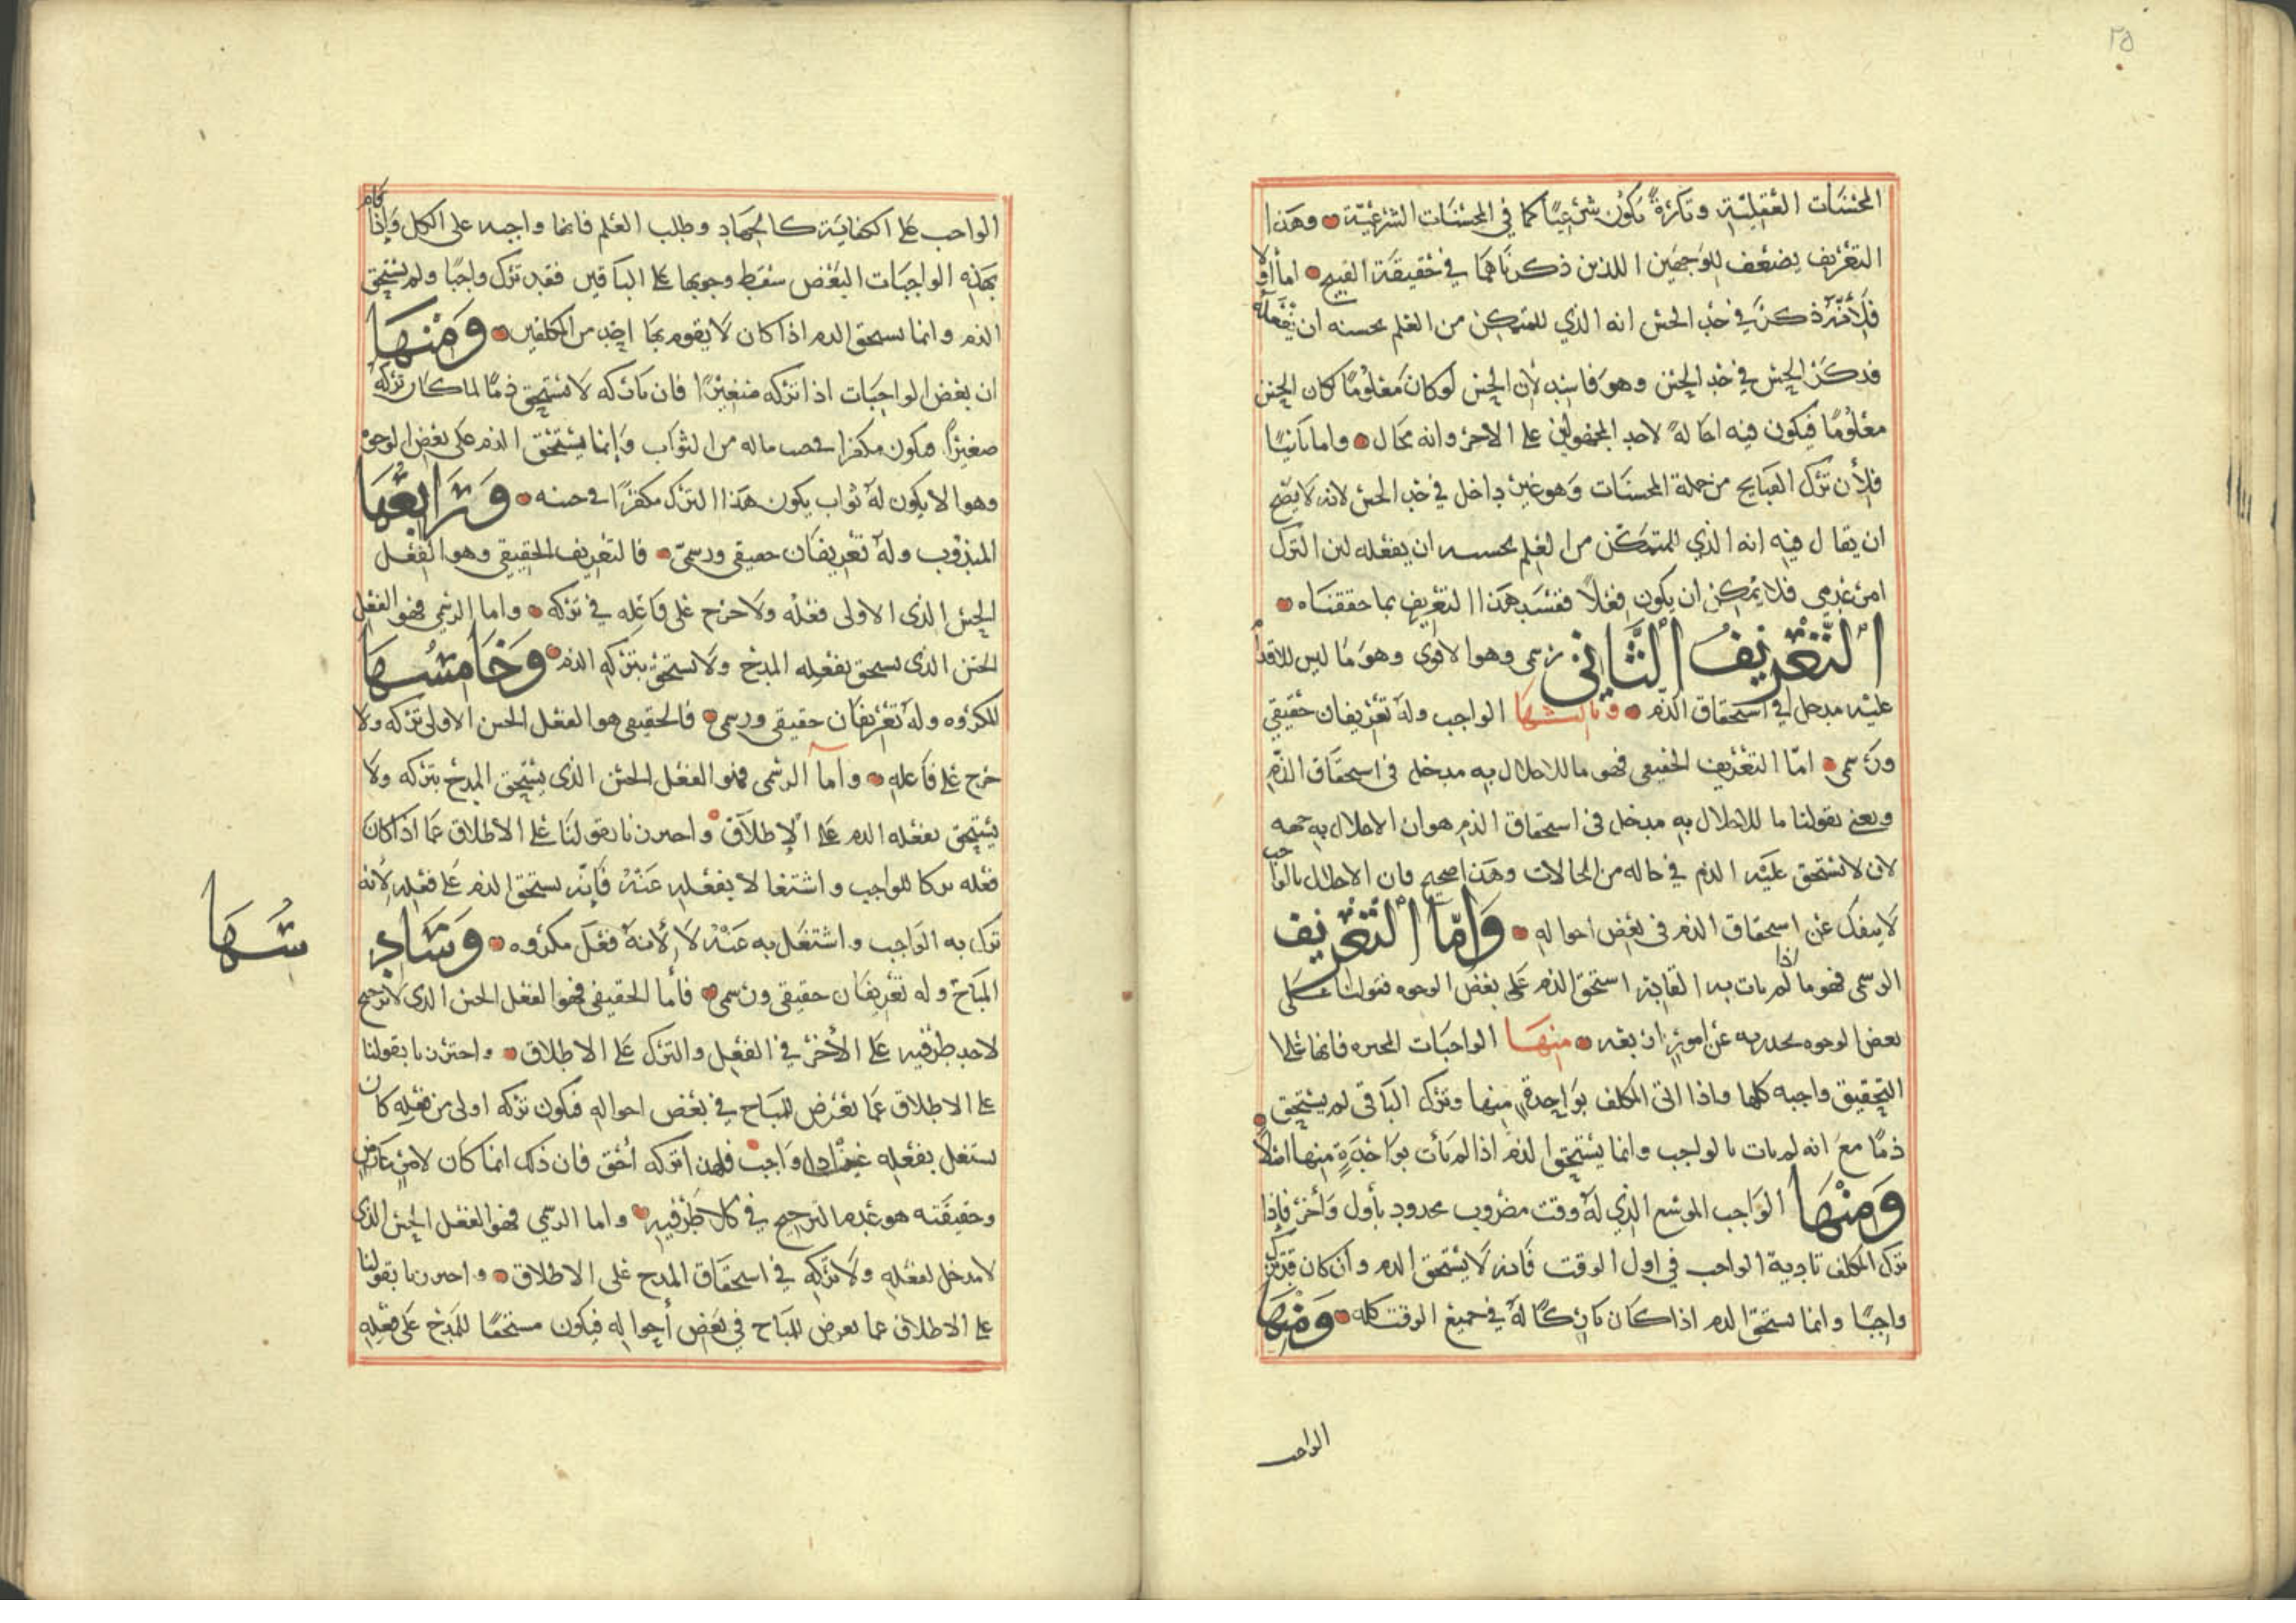 ٢٥
المحسنات العقلية وتارة يكون شرعيا كما في المحسنات الشرعية وهذا
التعريف يضعف للوجهين اللذين ذكرناهما في حقيقة القبيح اما اولا
فلأنه ذكر في حد الحسن انه الذي للمتمكن من العلم بحسنه ان يفعله
فذكر الحسن في حد الحسن وهو فاسد لأن الحسن لو كان معلوما كان الحسن
معلوما فيكون فيه احالة لاحد المجهولين على الاخر وانه محال واما ثانيا
فلأن ترك القبايح من جملة المحسنات وهو غير داخل في حد الحسن لانه لا يصح
ان يقال فيه انه الذي للمتمكن من العلم بحسنه ان يفعله لان الترك
امر عدمي فلا يمكن ان يكون فعلا ففسد هذا التعريف بما حققناه
التعريف الثاني رسمي وهو الاقوى وهو ما ليس للاقدام
عليه مدخل في استحقاق الذم وثالثها الواجب وله تعريفان حقيقي
ورسمي اما التعريف الحقيقي فهو ما للاخلال به مدخل في استحقاق الذم
ونعني بقولنا ما للاخلال به مدخل في استحقاق الذم هو ان الاخلال به جهة
لان لا تستحق عليه الذم في حالة من الحالات وهذا صحيح فان الاخلال بالواجب
لا ينفك عن استحقاق الذم في بعض احواله واما التعريف
الرسمي فهو ما اذا لم يات به القادر استحق الذم على بعض الوجوه فقولنا على
بعض الوجوه نحترز به عن امور اربعة منها الواجبات المخيرة فانها على
التحقيق واجبة كلها واذا اتى المكلف بواحدة منها وترك الباقي لم يستحق
ذما مع انه لم يات بالواجب وانما يستحق الذم اذا لم يأت بواحدة منها اصلا
ومنها الواجب الموسع الذي له وقت مضروب محدود بأول وأخر فإذا
ترك المكلف تادية الواجب في اول الوقت فانه لا يستحق الذم وان كان قد ترك
واجبا وانما يستحق الذم اذا كان تاركا له في جميع الوقت كله ومنها
الواجب
الواجب على الكفاية كالجهاد وطلب العلم فانها واجبه على الكل وإذا قام
بهذه الواجبات البعض سقط وجوبها على الباقين فقد ترك واجبا ولم يستحق
الذم وانما يستحق الذم اذا كان لا يقوم بها احد من المكلفين ومنها
ان بعض الواجبات اذا تركه صغيرا فان تاركه لا يستحق ذما لما كان تركه
صغيرا فيكون مكفرا في جنب ماله من الثواب وإنما يستحق الذم على بعض الوجوه
وهو الا يكون له ثواب يكون هذا الترك مكفرا في جنبه ورابعها
المندوب وله تعريفان حقيقي ورسمي فالتعريف الحقيقي وهو الفعل
الحسن الذي الاولى فعله ولا حرج على فاعله في تركه واما الرسمي فهو الفعل
الحسن الذي يستحق بفعله المدح ولا يستحق بتركه الذم وخامسها
المكروه وله تعريفان حقيقي ورسمي فالحقيقي هو الفعل الحسن الاولى تركه ولا
حرج على فاعله واما الرسمي فهو الفعل الحسن الذي يستحق المدح بتركه ولا
يستحق بفعله الذم على الإطلاق واحترزنا بقولنا على الأطلاق عما اذا كان
فعله تركا للواجب واشتغالا بفعله عنه فإنه يستحق الذم على فعله لأنه
ترك به الواجب واشتغل به عنه لا لأنه فعل مكروه وسادسها
المباح وله تعريفان حقيقي ورسمي فأما الحقيقي فهو الفعل الحسن الذي لا ترجيح
لاحد طرفيه على الأخر في الفعل والترك على الاطلاق واحترزنا بقولنا
على الاطلاق عما يعرض للمباح في بعض احواله فيكون تركه اولى من فعله كان
يشتغل بفعله عن اداء واجب فلهذا تركه أحق فان ذلك انما كان لامر عارض
وحقيقته هو عدم الترجيح في كلا طرفيه واما الرسمي فهو الفعل الحسن الذي
لا مدخل لفعله ولا تركه في استحقاق المدح على الاطلاق واحترزنا بقولنا
على الاطلاق عما يعرض للمباح في بعض أحواله فيكون مستحقا للمدح على فعله